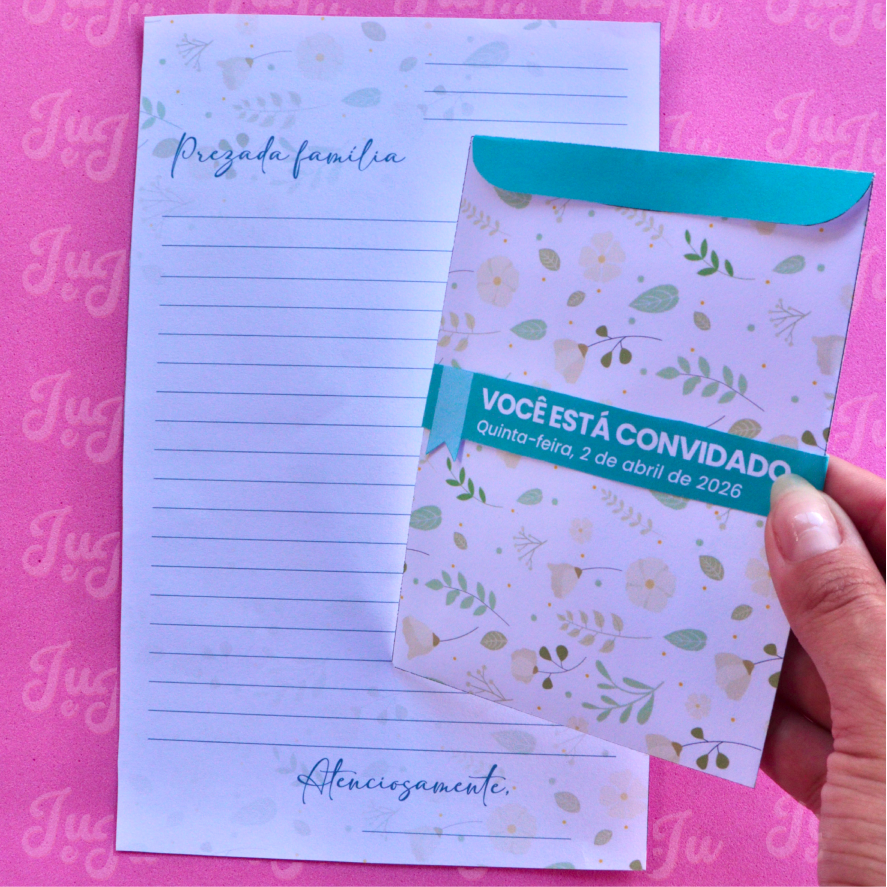 Prezada família
VOCÊ ESTÁ CONVIDADO
Quinta-feira, 2 de abril de 2026
Atenciosamente,
Ju e Ju